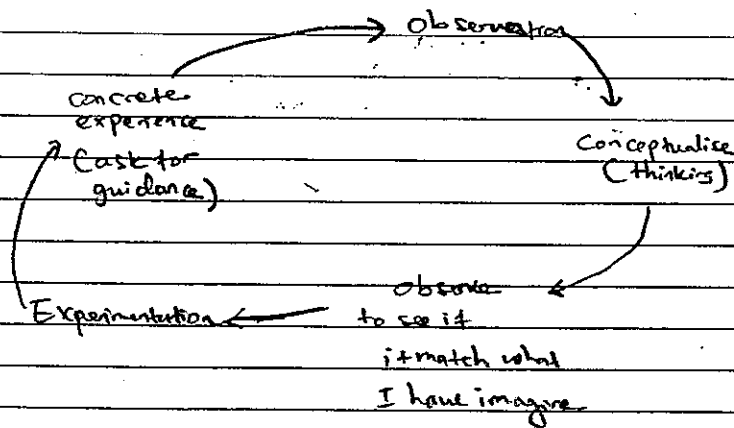 Observation
concrete
experience
(ask for
guidance)
Conceptualise
(thinking)
observe
to see if
it match what
I have imagine
Experimentation